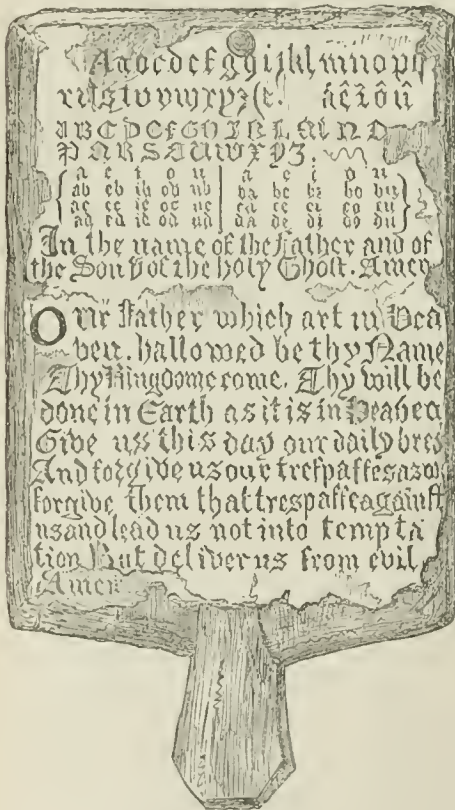 Aabcdefghijklmnopq
rſsstuvwxyz&e. áêîôû
ABCDEFGHIKLMNO
PQRSTUWXYZ.
a e i o u a e i o u
ab eb ib ob ub ba be bi bo bu
ac ec ic oc uc ca ce ci co cu
ad ed id od ud da de di do du
In the name of the Father and of
the Son & of the holy Ghost. Amen
Our Father which art in Hea
ven. hallowed be thy Name
Thy Kingdome come. Thy will be
done in Earth as it is in Heaven
Give us this day our daily bred
And forgive us our treſpaſſes as we
forgive them that trespaſſe againſt
us and lead us not into tempta
tion But deliver us from evil
Amen